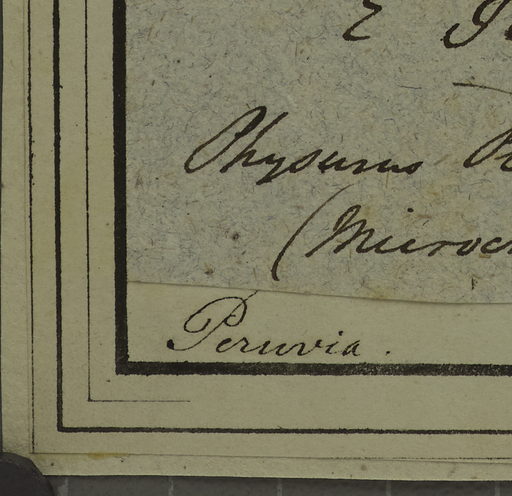 Physurus
(Microc
Peruvia.